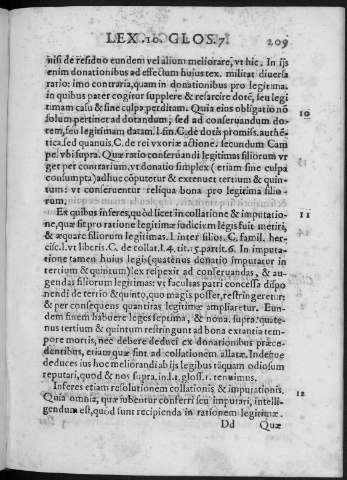 LEX. 10. GLOS. 7. 209
nisi de residuo eundem vel alium meliorare, vt hic. In ijs
enim donationibus ad effectum hujus tex. militat diversa
ratio: imo contraria, quam in donationibus pro legitima.
in quibus pater cogitur supplere & resarcire dotē, seu legi
timam casu & sine culpa perditam. Quia eius obligatio nō
solum pertinet ad dotandum, sed ad conseruandum do-
tem, seu legitimam datam. l. fin. C. de dotis promiss. authē-
tica. sed quamuis. C. de rei vxoriæ actione. secundum Cam
pe. vbi supra. Quæ ratio conseruandi legitimas filiorum vr
get per contrarium, vt donatio simplex (etiam sine culpa
consumpta) adhuc cōputetur & extenuet tertium & quin-
tum: vt conseruentur reliqua bona pro legitima filio-
rum.
10
Ex quibus inferes, quòd licet in collatione & imputatio-
ne, quæ sit pro ratione legitimæ judicium legis fuit metiri,
& æquare filiorum legitimas. l. inter filios. C. famil. her-
cisc. l. vt liberis. C. de collat. l. 4. tit. 15. part. 6. In imputa-
tione tamen huius legis (quatenus donatio imputatur in
tertium & quintum) lex respexit ad conseruandas, & au-
gendas filiorum legitimas: vt facultas patri concessa dispo
nendi de tertio & quinto, quo magis posset, restringeretur:
& per consequens quantitas legitimæ ampliaretur. Eun-
dem finem habuere leges septima, & nona. supra: quate-
nus tertium & quintum restringunt ad bona extantia tem-
pore mortis, nec debere deduci ex donationibus præce-
dentibus, etiam quæ sint ad collationem allatæ. Indeque
deduces ius hoc meliorandi ab ijs legibus tāquam odiosum
reputari, quod & nos supra, in l. 1. gloss. 1. tenuimus.
11
Inferes etiam resolutionem collationis & imputationis.
Quia omnia, quæ iubentur conferri seu imputari, intelli-
gendum est, quòd sunt recipienda in rationem legitimæ.
12
Dd Quæ